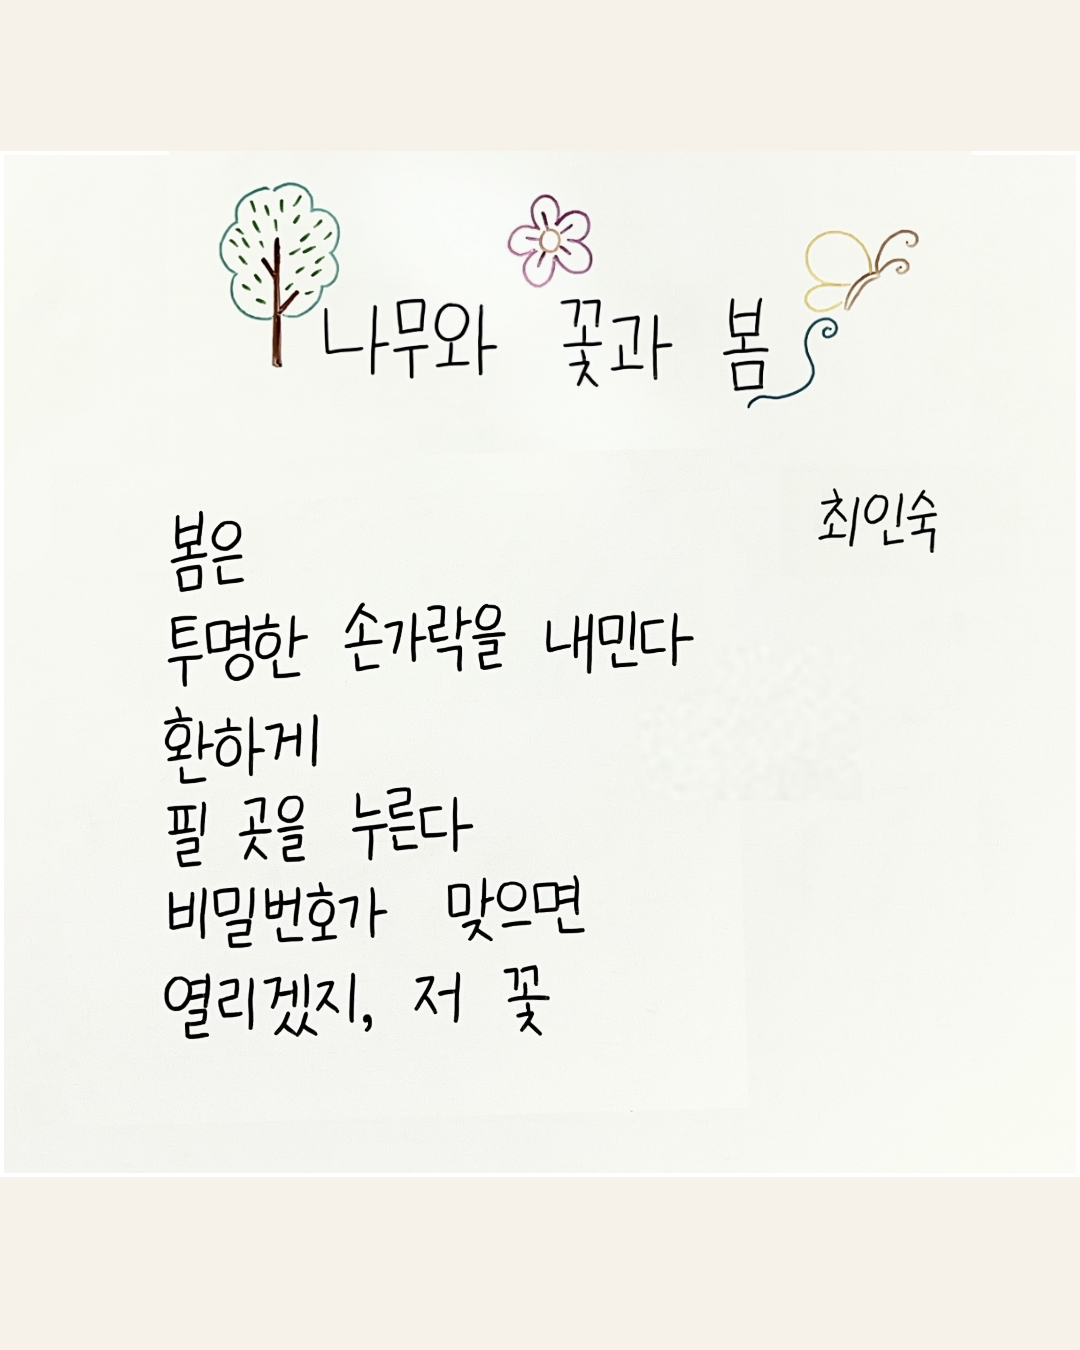 나무와 꽃과 봄
최인숙
봄은
투명한 손가락을 내민다
환하게
필 곳을 누른다
비밀번호가 맞으면
열리겠지, 저 꽃